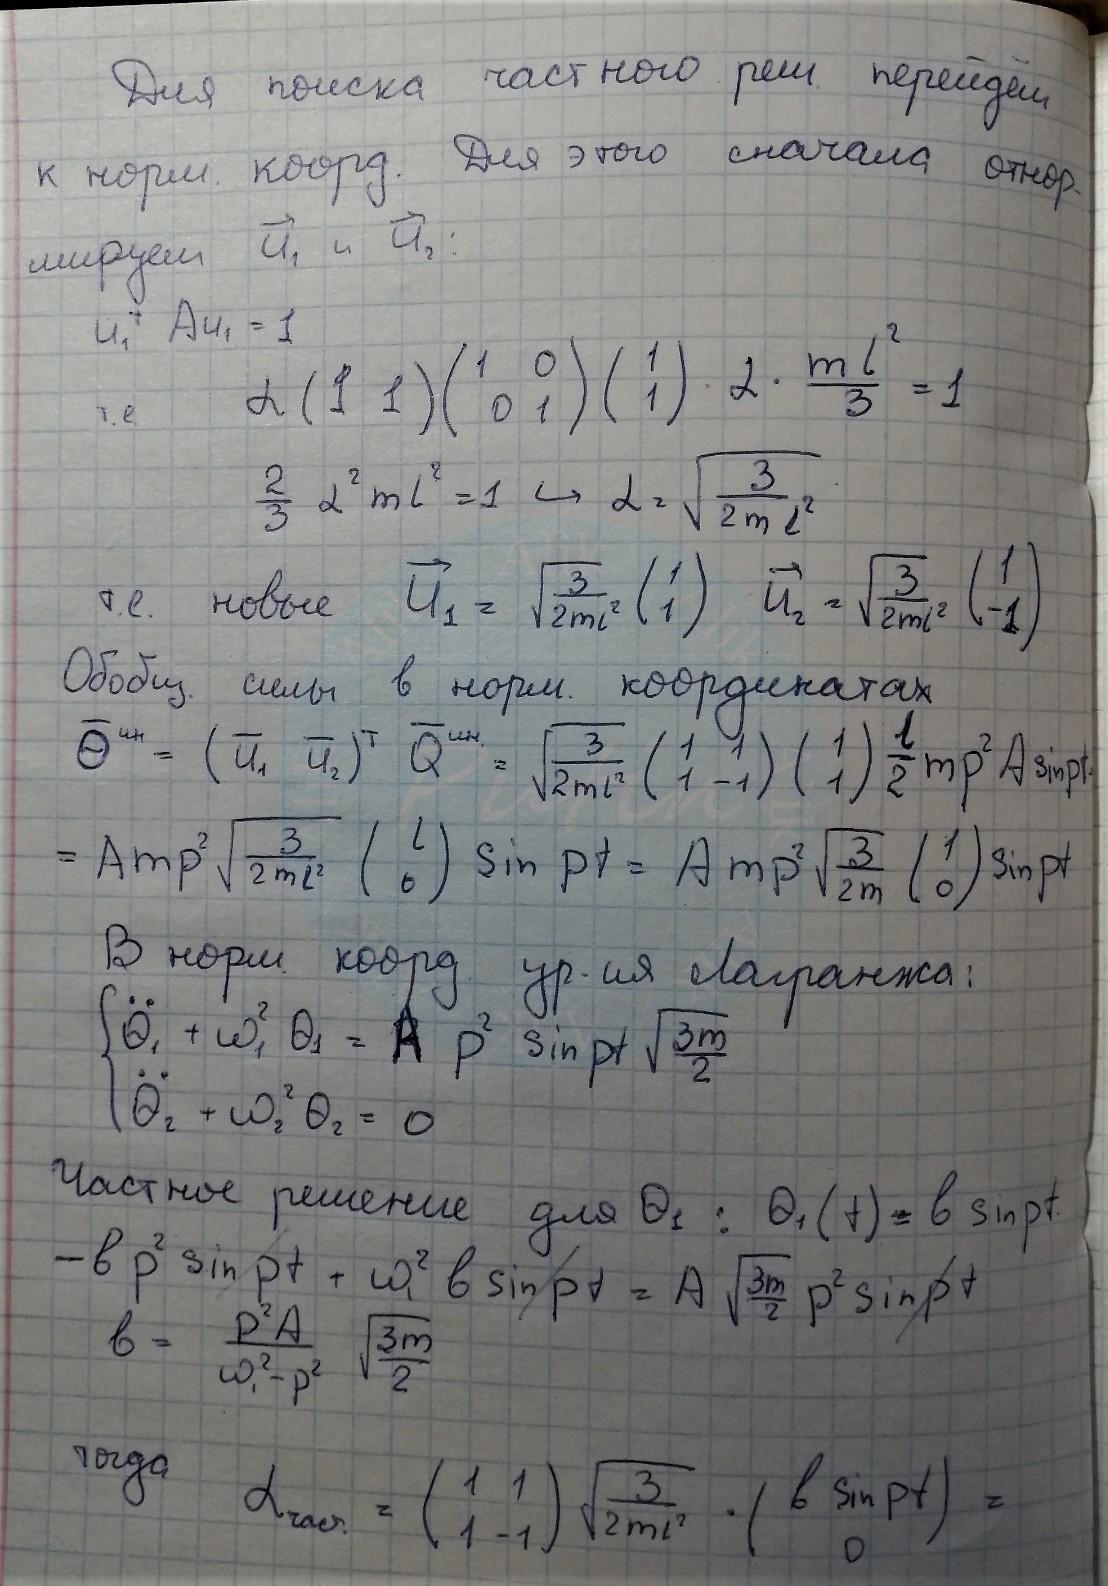 Для поиска частного реш. перейдём
к норм. коорд. Для этого сначала отнор-
мируем u⃗₁ и u⃗₂:
u₁ᵀ A u₁ = 1
т.е. α (1 1) (1 0; 0 1) (1; 1) · α · ml²/3 = 1
2/3 α² m l² = 1 ↪ α = √(3/(2ml²))
т.е. новые u⃗₁ = √(3/(2ml²)) (1; 1) u⃗₂ = √(3/(2ml²)) (1; -1)
Обобщ. силы в норм. координатах
Θ̅ᶦᶥ = (u̅₁ u̅₂)ᵀ Q̅ᶥᶦ = √(3/(2ml²)) (1 1; 1 -1) (1; 1) l/2 mp² A sin pt =
= Amp² √(3/(2ml²)) (l; 0) sin pt = Amp² √(3/(2m)) (1; 0) sin pt
В норм. коорд. ур-ия Лагранжа:
{ θ̈₁ + ω₁² θ₁ = A p² sin pt √(3m/2)
θ̈₂ + ω₂² θ₂ = 0
Частное решение для θ₁: θ₁(t) = b sin pt.
-b p² sin pt + ω₁² b sin pt = A √(3m/2) p² sin pt
b = p²A/(ω₁² - p²) √(3m/2)
тогда
α част. = (1 1; 1 -1) √(3/(2ml²)) · (b sin pt; 0) =